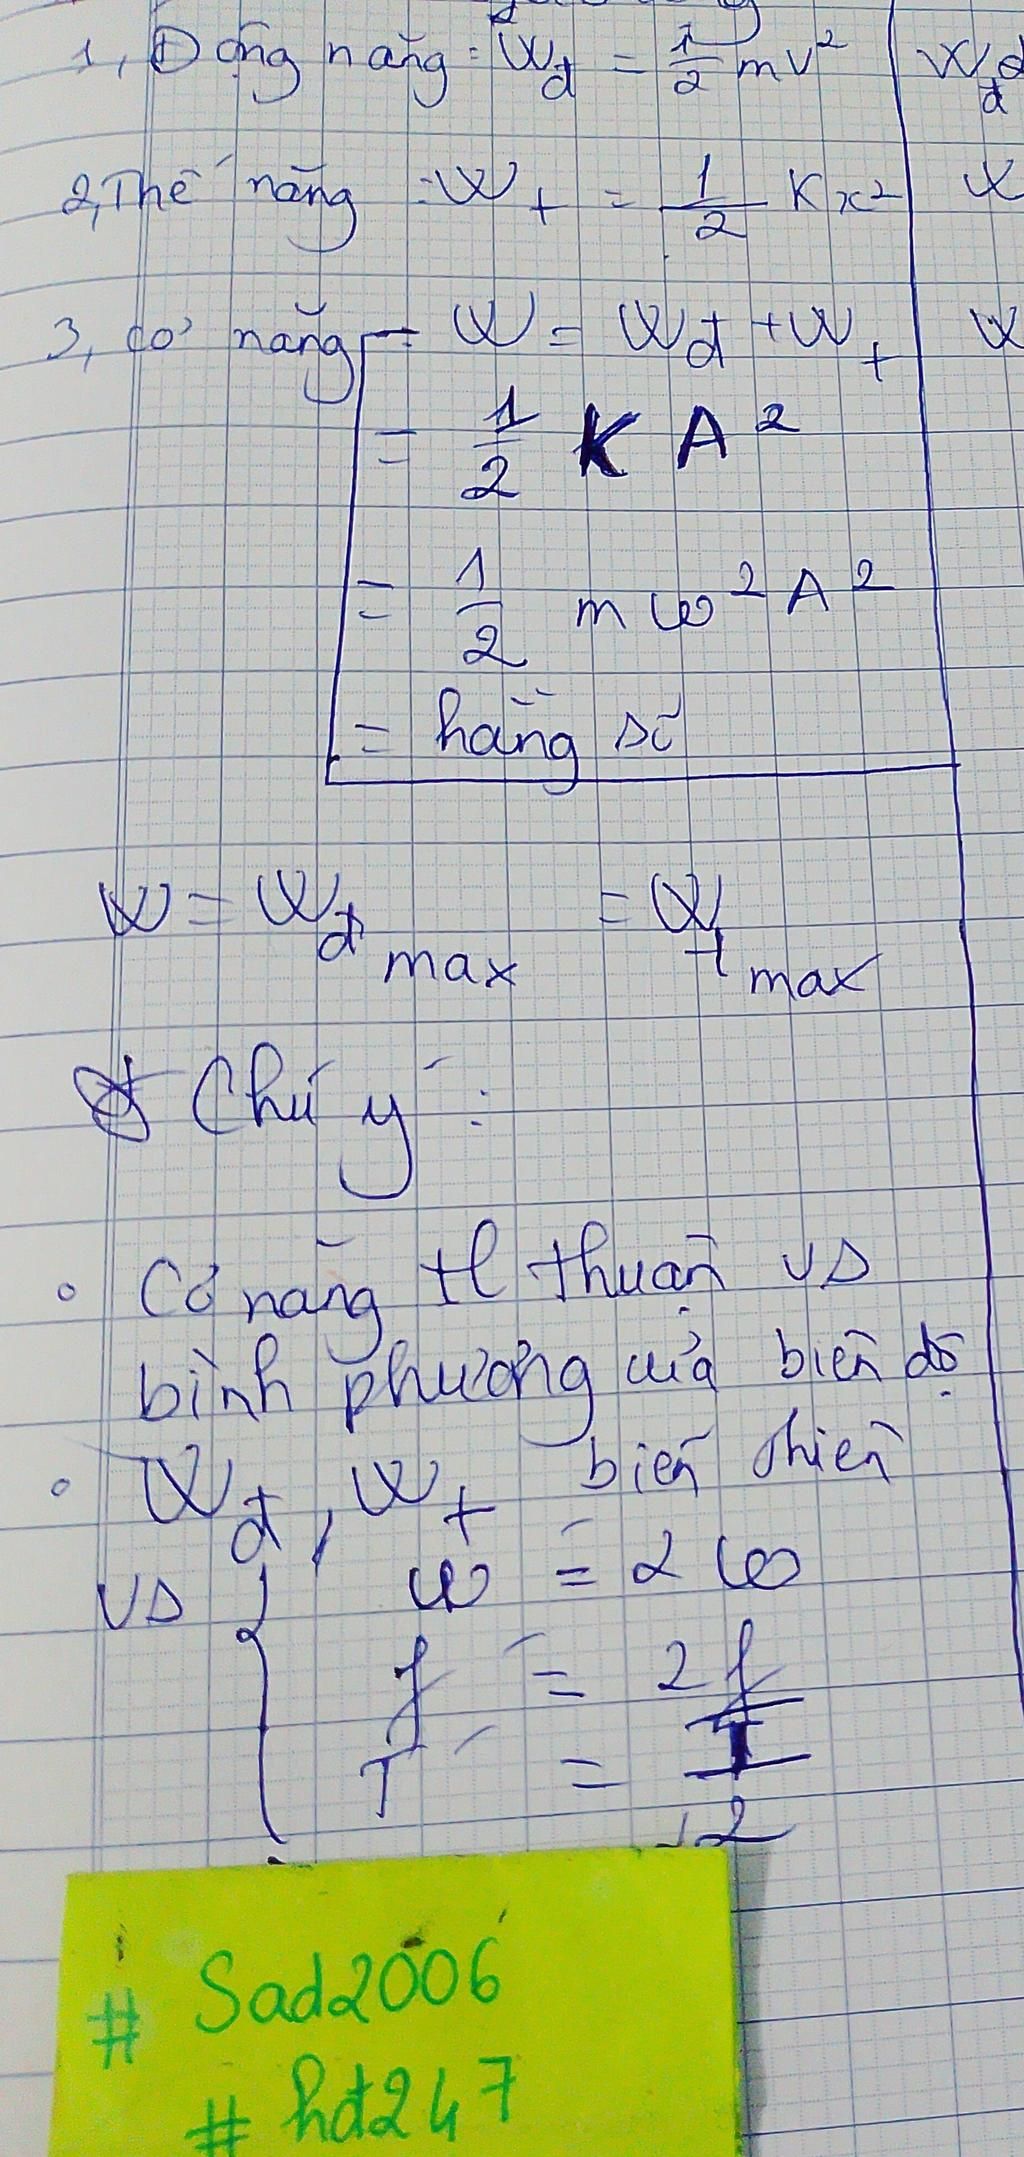 1, Động năng: Wđ = 1/2 mv² Wđ
2, Thế năng : Wt = 1/2 Kx² W
3, cơ năng = W = Wđ + Wt W
= 1/2 K A²
= 1/2 m ω² A²
= hằng số
W = Wđ max = Wt max
Chú ý :
• Cơ năng tl thuận vs
bình phương của biên độ
• Wđ, Wt biến thiên
vs { ω' = 2 ω
f' = 2f
T' = T/2
# Sad2006
# hđ247